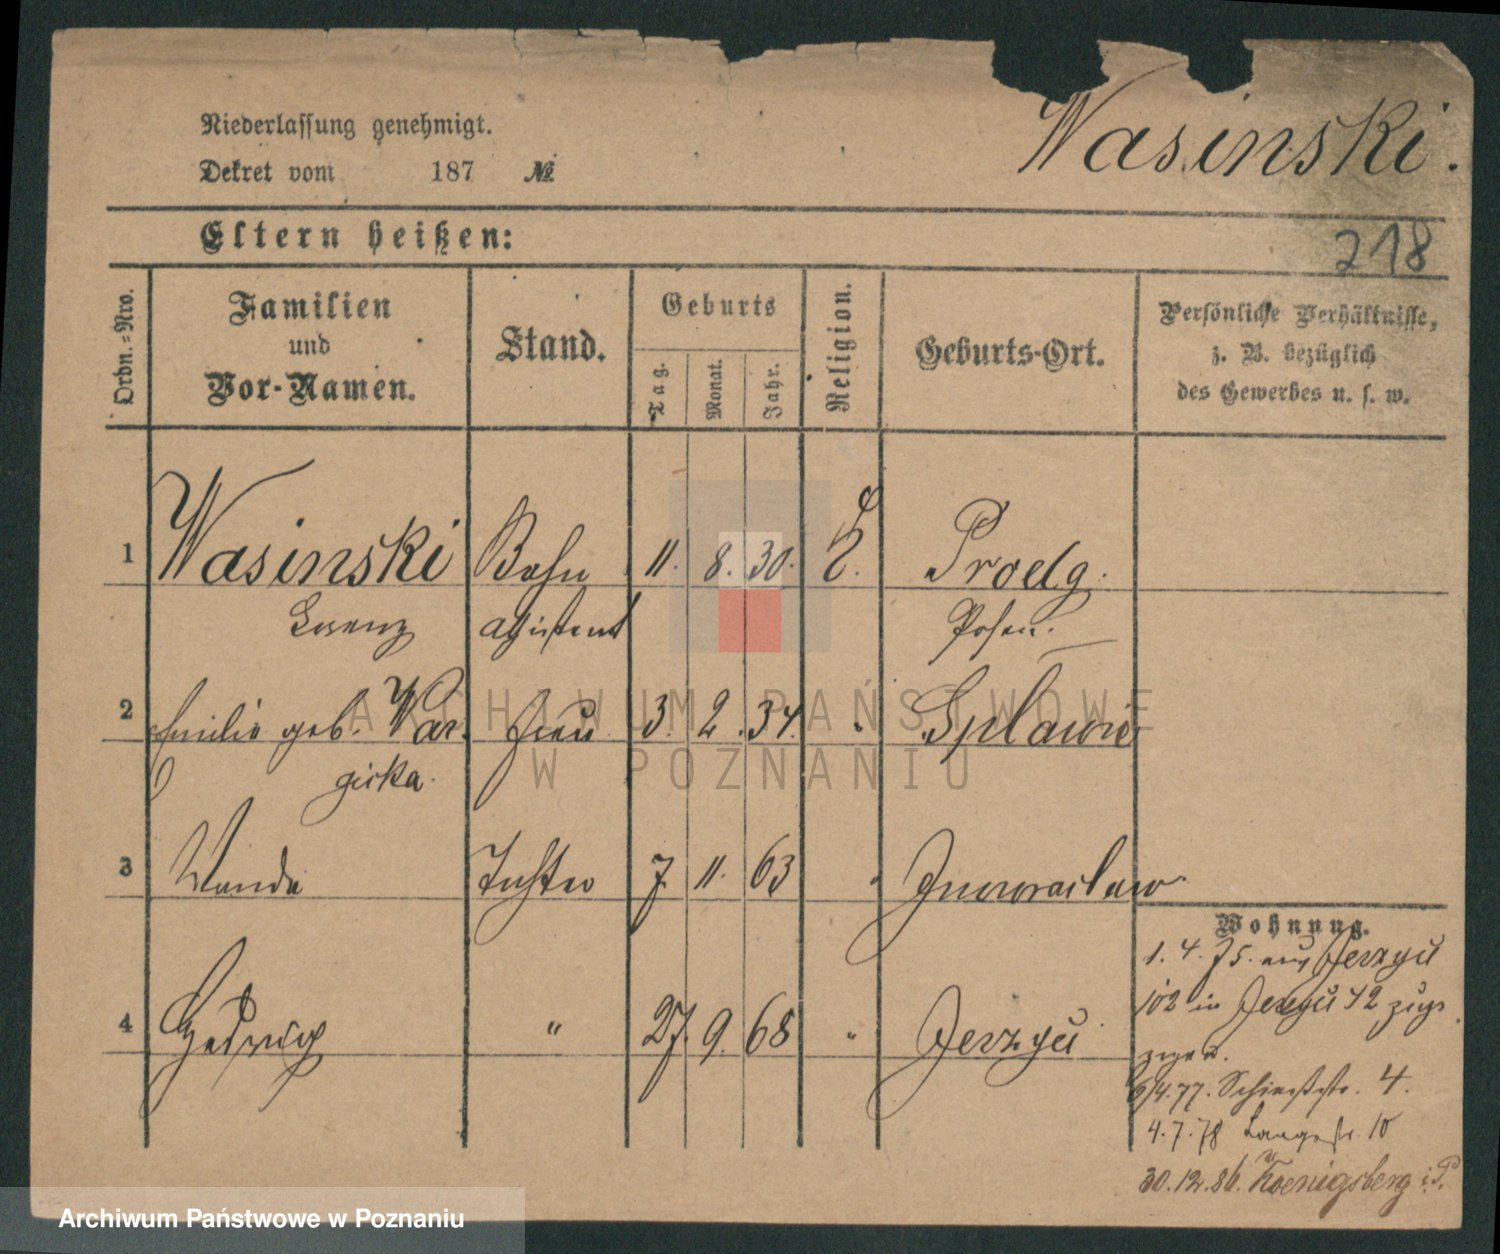 Niederlassung genehmigt.
Wasinski.
Dekret vom 187 №
Eltern heißen:
218
Ordn.=Nro.
Familien
und
Vor-Namen.
Stand.
Geburts
Tag.
Monat.
Jahr.
Religion.
Geburts-Ort.
Persönliche Verhältnisse,
z. B. bezüglich
des Gewerbes u. s. w.
1 Wasinski Bahn 11. 8. 30. Proelg.
Lorenz assistent Posen.
2 Emilie geb. War Frau 3. 2. 34. " Splawie
gicka.
3 Wanda Tochter 7. 11. 63 " Inowraclaw
Wohnung.
1. 4. 75. aus Jerzyce
102 in Jerzyce 42 zuge
zogen.
4 Hedwig " 27. 9. 68 " Jerzyce
6/4.77. Schiesstr. 4.
4.7.78 Langestr. 10
30.12.86. Koenigsberg i. P.
ARCHIWUM PAŃSTWOWE
W POZNANIU
Archiwum Państwowe w Poznaniu